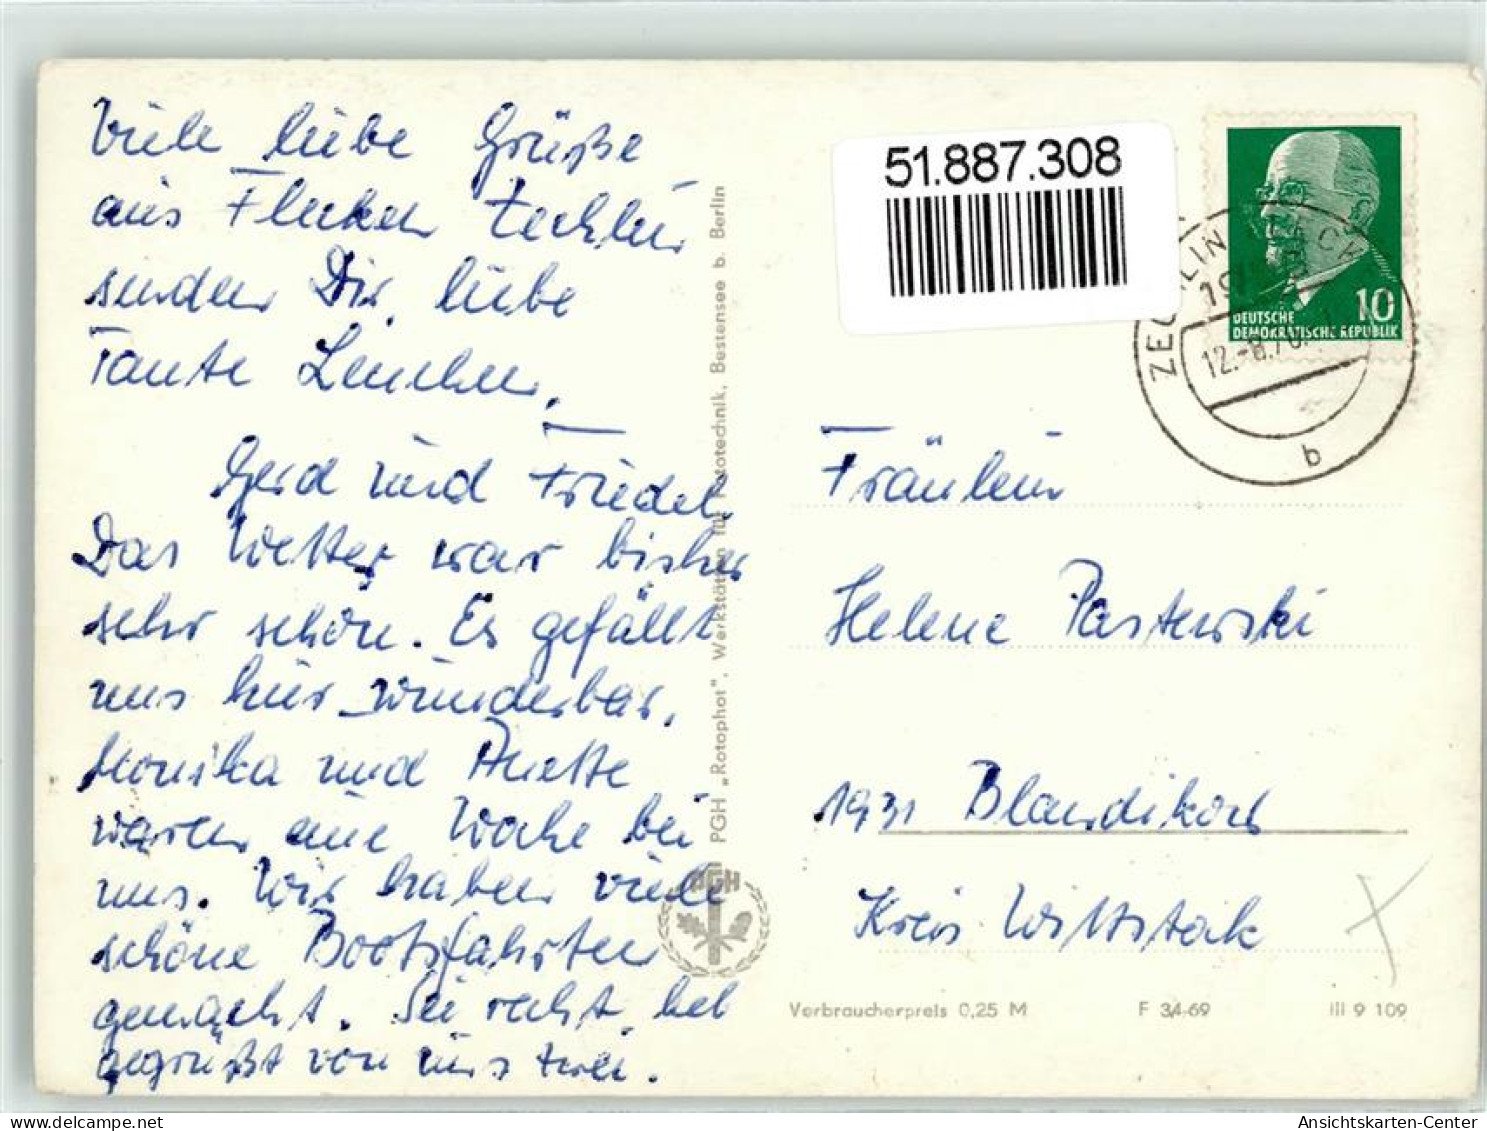 Viele liebe Grüße
aus Flecken Zechlin
senden Dir, liebe
Tante Lenchen,
Gerd und Friedel.
Das Wetter war bisher
sehr schön. Es gefällt
uns hier wunderbar.
Monika und Anette
waren eine Woche bei
uns. Wir haben viele
schöne Bootsfahrten
gemacht. Sei recht hel
gegrüßt von uns zwei.
PGH „Rotophot", Werkstätten für Fototechnik, Bestensee b. Berlin
PGH
51.887.308
10
DEUTSCHE
DEMOKRATISCHE REPUBLIK
ZECHLIN
12.-8.70
b
Fräulein
Helene Pastewski
1931 Blandikow
Kreis Wittstock
Verbraucherpreis 0,25 M F 34-69 III 9 109
Ansichtskarten-Center